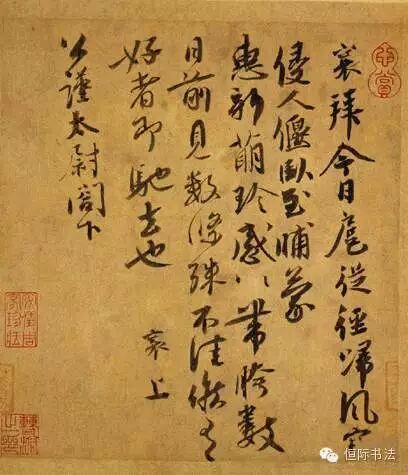 襄拜今日扈從徑歸風寒
侵人偃臥至晡蒙
惠新萌珍感〻帶胯數
日前見數條殊不佳候有
好者即馳去也
襄上
公謹太尉閤下
但际书法